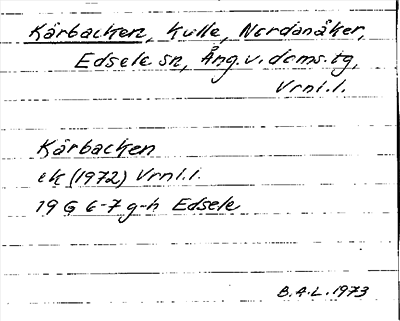 Kårbacken, Kulle, Nordanåker,
Edsele sn, Ång. v. doms. tg,
Vrnl. l.
Kårbacken
ek (1972) Vrnl. l.
19 G 6-7 g-h Edsele
B.A.L. 1973